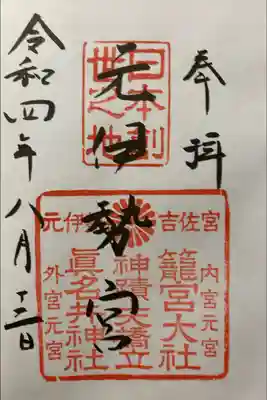 奉拝
日本創
世之地
元伊勢宮
元伊 吉佐宮
内宮元宮
籠宮大社
神蹟天橋立
眞名井神社
外宮元宮
令和四年八月十二日